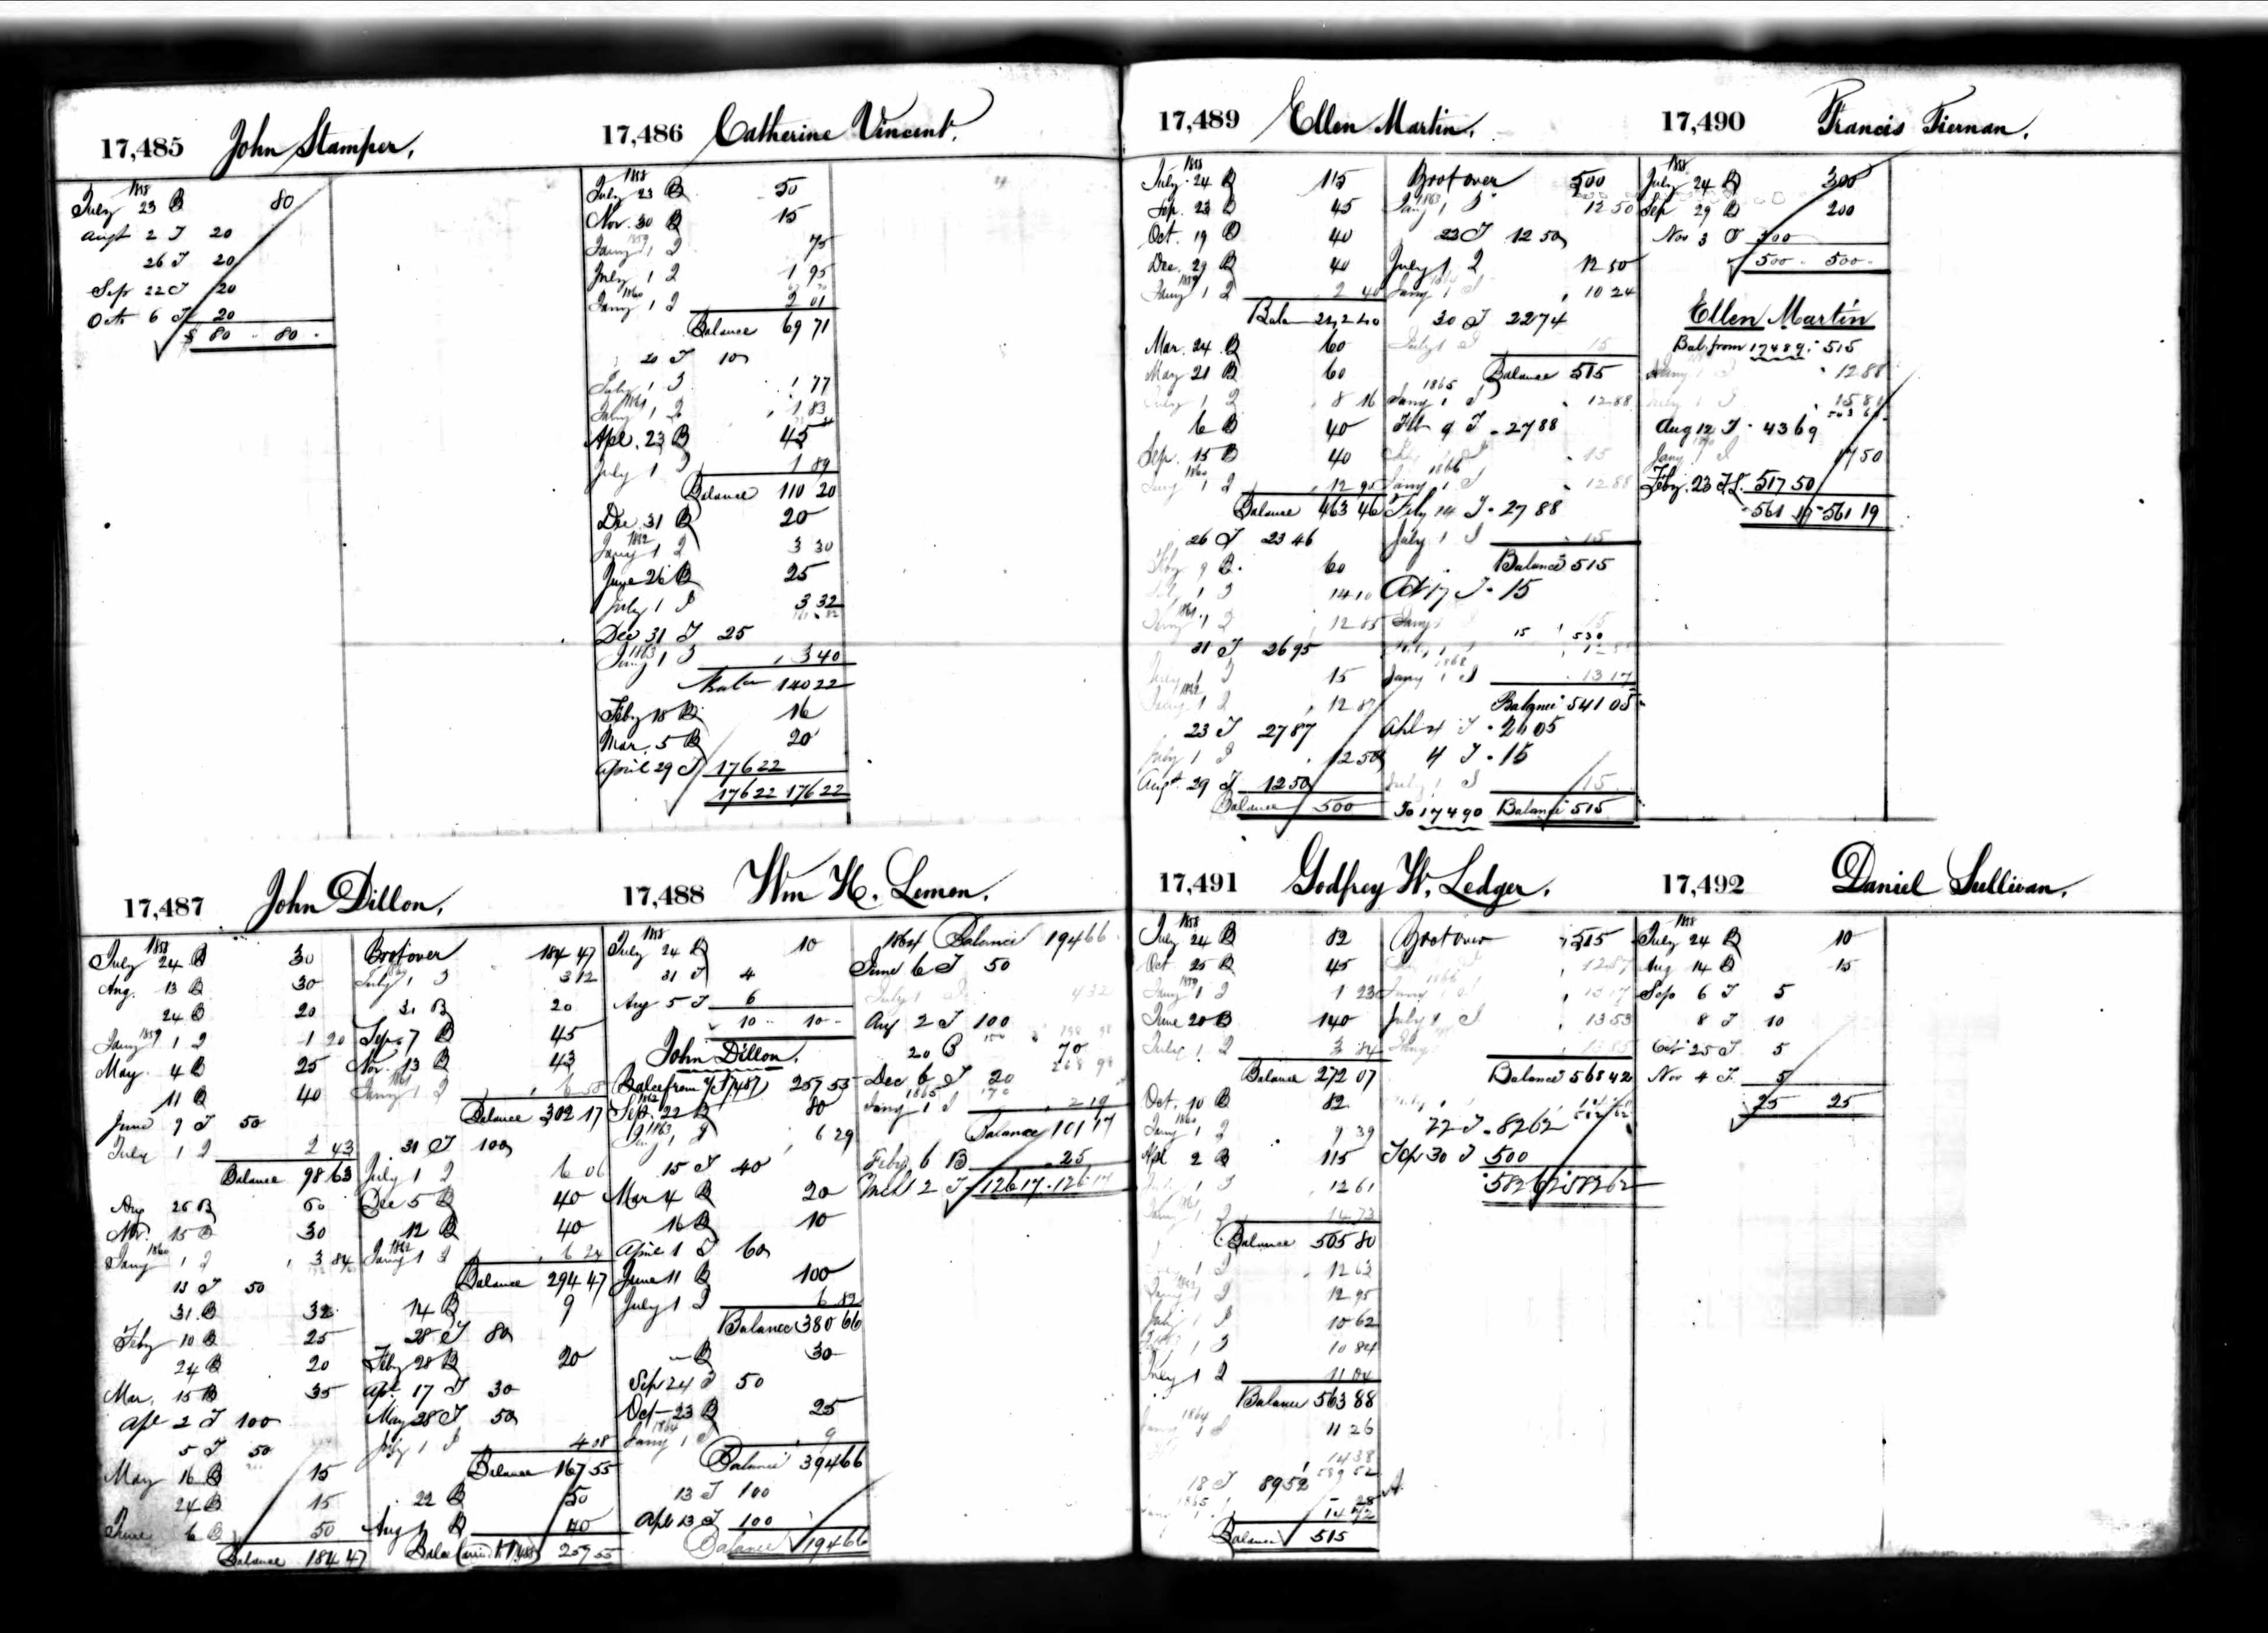 17,485 John Stamper.
1858
July 23 B 80
Augt 2 T 20
26 T 20
Sep 22 T 20
Oct 6 T 20
$ 80 - 80 -
17,486 Catherine Vincent.
1858
July 23 B 50
Nov. 30 B 15
1859
Jany 1 I 75
July 1 I 1 95
1860
Jany 1 I 2 01
Balance 69 71
20 T 10
July 1 I 1 77
1861
Jany 1 I 1 83
Apl. 23 B 45
July 1 I 1 89
Balance 110 20
Dec 31 B 20
1862
Jany 1 I 3 30
June 26 B 25
July 1 I 3 32
Dec 31 T 25
1863
Jany 1 I 3 40
Balce 140 22
Feby 18 B 16
Mar. 5 B 20
April 29 T 176 22
176 22 176 22
17,487 John Dillon.
1858
July 24 B 30
Aug. 13 B 30
24 B 20
1859
Jany 1 I 1 20
May 4 B 25
11 B 40
June 9 T 50
July 1 I 2 43
Balance 98 63
Aug 26 B 60
Nov. 15 B 30
1860
Jany 1 I 3 84
13 T 50
31 B 32
Feby 10 B 25
24 B 20
Mar. 15 B 35
Apl 2 T 100
5 T 50
May 16 B 15
24 B 15
June 6 B 50
Balance 184 47
Brot over 184 47
July 1 I 3 12
31 B 20
Sep. 7 B 45
Nov. 13 B 43
1861
Jany 1 I 6 58
Balance 302 17
31 T 100
July 1 I 6 06
Dec 5 B 40
12 B 40
1862
Jany 1 I 6 24
Balance 294 47
14 B 9
28 T 80
Feby 28 B 20
Apl. 17 T 30
May 28 T 50
July 1 I 4 08
Balance 167 55
22 B 50
Aug 1 B 40
Balce 257 55
17,488 Wm H. Lemon.
1858
July 24 B 10
31 T 4
Aug 5 T 6
10 - 10 -
John Dillon.
Balce from 17,487 257 55
1862
Sep. 22 B 80
1863
Jany 1 I 6 29
15 T 40
Mar 4 B 20
16 B 10
April 1 T 60
June 11 B 100
July 1 I 6 82
Balance 380 66
" B 30
Sep 24 T 50
Oct 23 B 25
1864
Jany 1 I 9
Balance 394 66
13 T 100
Apl 13 T 100
Balance 194 66
1864 Balance 194 66
June 6 T 50
July 1 I 4 32
Aug 2 T 100
20 B 70
Dec 6 T 20
1865
Jany 1 I 2 19
Balance 101 17
Feby 6 B 25
Mch 2 T 126 17 - 126 17
17,489 Ellen Martin.
1858
July 24 B 115
Sep. 23 B 45
Oct. 19 B 40
Dec. 29 B 40
1859
Jany 1 I 2 40
Balan 242 40
Mar. 24 B 60
May 21 B 60
July 1 I 8 16
6 B 40
Sep. 15 B 40
1860
Jany 1 I 12 90
Balance 463 46
26 T 23 46
Feby 9 B 60
July 1 I 14 10
1861
Jany 1 I 12 85
31 T 26 95
July 1 I 15
1862
Jany 1 I 12 87
23 T 27 87
July 1 I 12 50
Augt 29 T 12 50
Balance 500
Brot over 500
1863
Jany 1 I 12 50
23 T 12 50
July 1 I 12 50
Jany 1 I 10 24
30 T 22 74
July 1 I 15
Balance 515
1865
Jany 1 I 12 88
Feb 9 T 27 88
July 1 I 15
1866
Jany 1 I 12 88
Feby 14 T 27 88
July 1 I 15
Balance 515
Oct 17 T 15
Jany 1 15
15 530
1868
Jany 1 I 13 17
Balance 541 05
Apl 4 T 26 05
4 T 15
July 1 I 15
To 17490 Balance 515
17,490 Francis Tiernan.
1858
July 24 B 300
Sep 29 B 200
Nov 3 T 500
500 - 500 -
Ellen Martin
Bal. from 17489. 515
Jany 1 I 12 88
July 1 I 15 81
Aug 12 T 43 69
Jany 1 I 17 50
Feby. 23 T 517 50
561 19 561 19
17,491 Godfrey W. Ledger.
1858
July 24 B 82
Oct 25 B 45
1859
Jany 1 I 1 23
June 20 B 140
July 1 I 3 84
Balance 272 07
Oct. 10 B 82
1860
Jany 1 I 9 39
Apl 2 B 115
July 1 I 12 61
1861
Jany 1 I 14 73
Balance 505 80
July 1 I 12 63
1862
Jany 1 I 12 95
July 1 I 10 62
1863
Jany 1 I 10 84
July 1 I 11 04
Balance 563 88
1864
Jany 1 I 11 26
14 38
589 52
18 T 89 52
1865
Balance 515
Brot over 515
12 87
1866
Jany 1 I 13 17
July 1 I 13 53
Jany 13 85
Balance 568 42
22 T 82 62
Sep 30 T 500
582 62 582 62
17,492 Daniel Sullivan.
1858
July 24 B 10
Aug 14 B 15
Sep 6 T 5
8 T 10
Oct 25 T 5
Nov 4 T 5
25 25